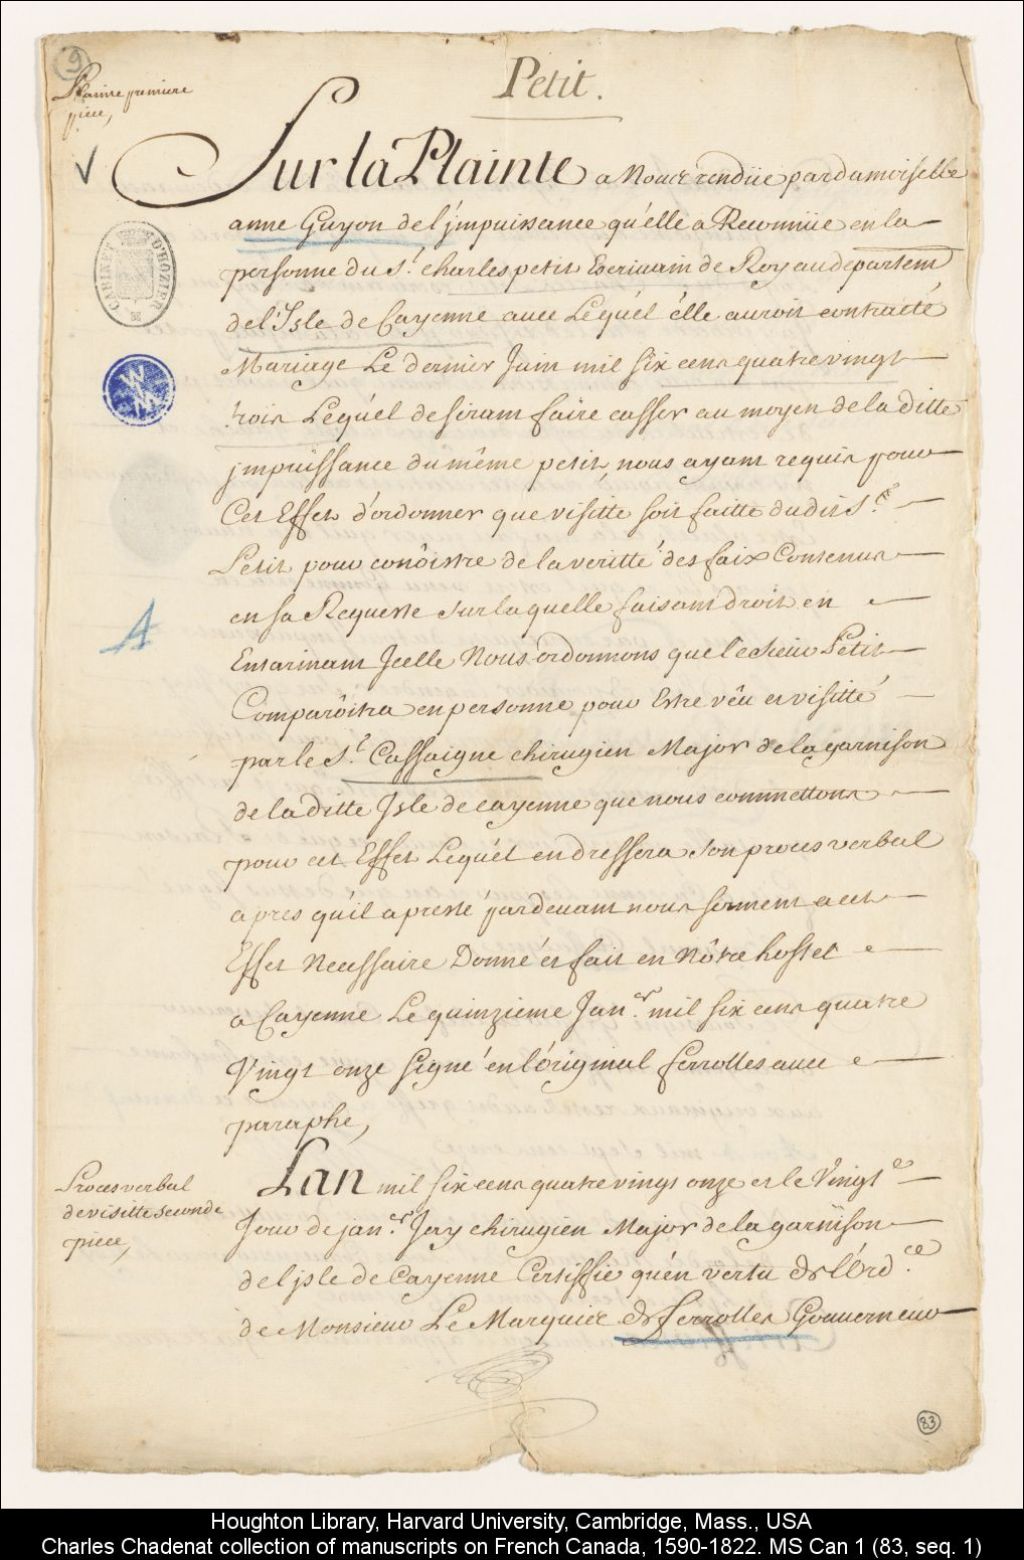 9
Petit.
Plainte premiere
piece,
Sur la Plainte a Nous rendüe par damoiselle
anne Guyon de l'jmpuissance qu'elle a Reconnüe en la
personne du S.r charles petit Escrivain de Roy au departemt
de l'Isle de Cayenne avec Lequel elle auroit contracté
Mariage Le dernier Juin mil six cens quatre vingt
trois Lequel desirant faire casser au moyen de la ditte
jmpuissance du même petit, nous ayant requis pour
Cet Effet d'ordonner que visitte soit faitte dudit S.r
Petit pour conôistre de la veritté des faix Contenus
en sa Requeste sur laquelle faisant droit en
Entarinant Jcelle Nous ordonnons que le sieur Petit
Comparôitra en personne pour Estre vêu et visitté
par le S.r Cassaigne chirugien Major de la garnison
de la ditte Isle de cayenne que nous commettons
pour cet Effet Lequel en dressera son proces verbal
apres qu'il a presté pardevant nous serment a cet
Effet Necessaire Donné et fait en Nôtre hostel
a Cayenne Le quinzieme Jan.er mil six cens quatre
Vingt onze signé en l'original ferrolles avec
paraphe,
Proces verbal
de visitte seconde
piece,
Lan mil six cens quatre vingt onze et le Vingt.e
Jour de jan.er Jay chirugien Major de la garnison
de l'jsle de Cayenne Certiffie qu'en vertu de l'Ord.ce
de Monsieur Le Marquis de ferrolles Gouverneur
CABINET D'HOZIER
A
83
Houghton Library, Harvard University, Cambridge, Mass., USA
Charles Chadenat collection of manuscripts on French Canada, 1590-1822. MS Can 1 (83, seq. 1)